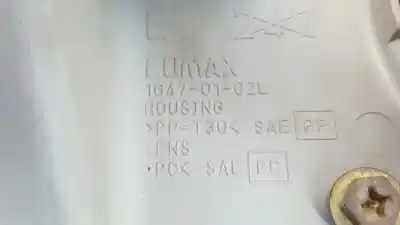 L
FUMAX
1647-01-02L
HOUSING
>PP-T30< SAE PP
LENS
>PC< SAE PC